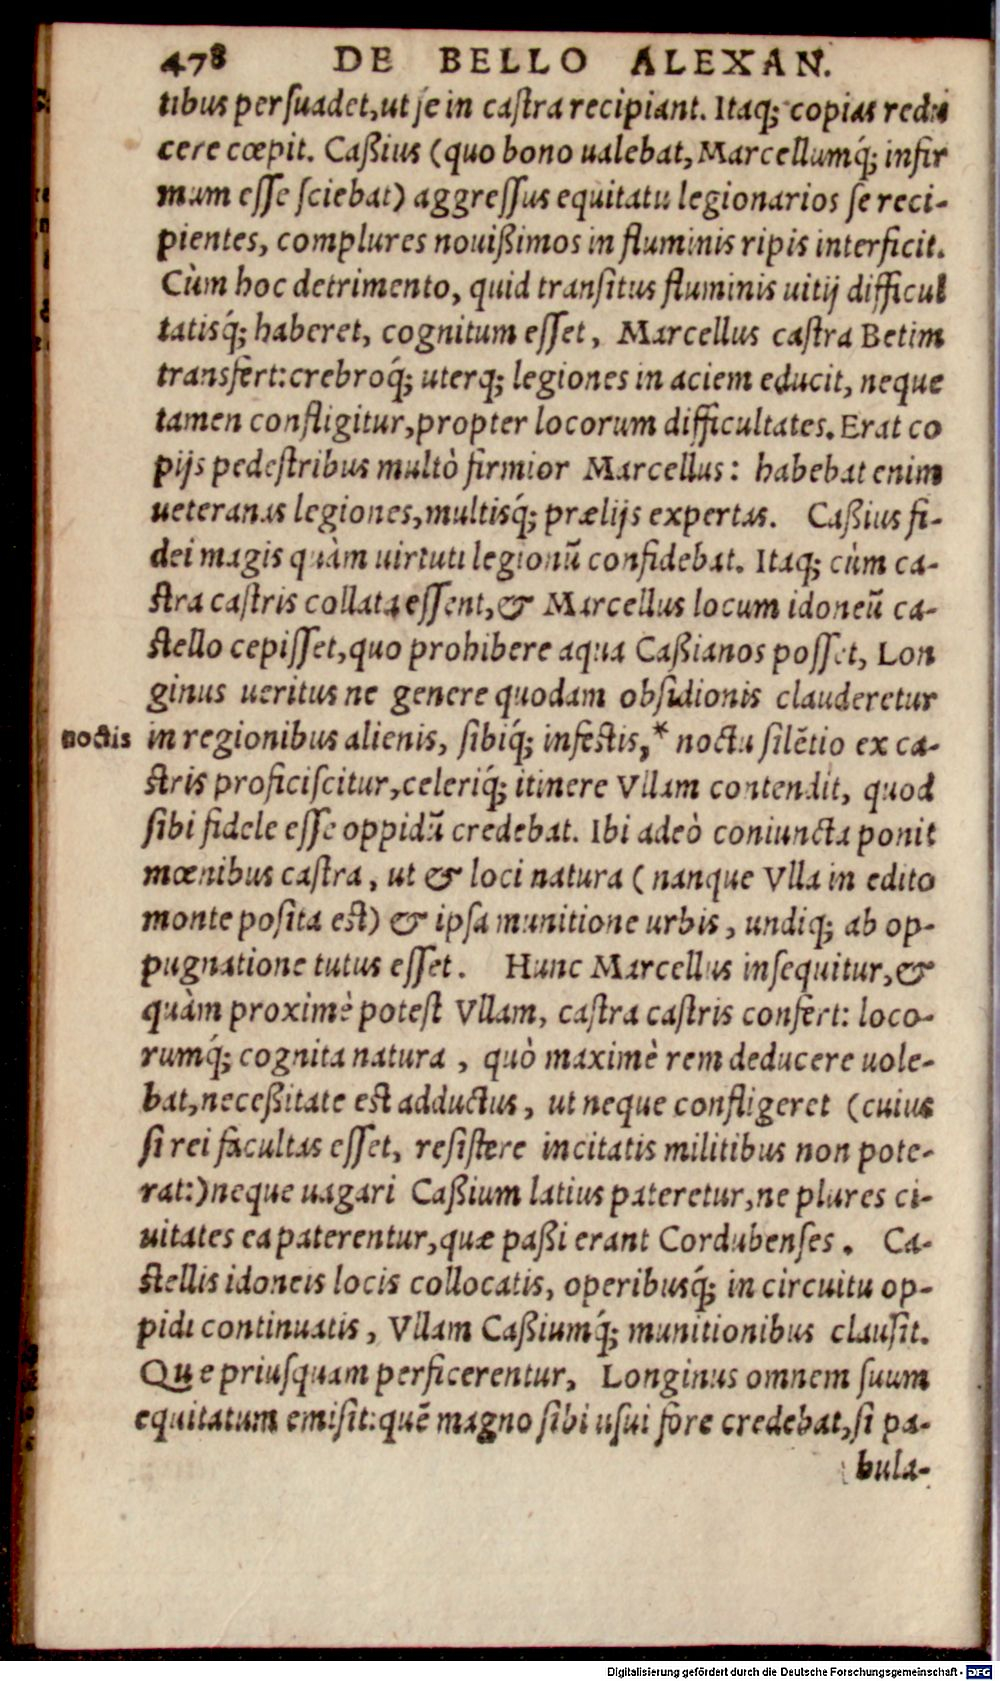 478 DE BELLO ALEXAN.
tibus persuadet, ut se in castra recipiant. Itaq; copias redu
cere cœpit. Caßius (quo bono ualebat, Marcellumq́; infir
mum esse sciebat) aggressus equitatu legionarios se reci-
pientes, complures nouißimos in fluminis ripis interficit.
Cùm hoc detrimento, quid transitus fluminis uitij difficul
tatisq́; haberet, cognitum esset, Marcellus castra Betim
transfert: crebroq́; uterq; legiones in aciem educit, neque
tamen confligitur, propter locorum difficultates. Erat co
pijs pedestribus multò firmior Marcellus: habebat enim
ueteranas legiones, multisq́; prælijs expertas. Caßius fi-
dei magis quàm uirtuti legionũ confidebat. Itaq; cùm ca-
stra castris collata essent, & Marcellus locum idoneũ ca-
stello cepisset, quo prohibere aqua Caßianos posset, Lon
ginus ueritus ne genere quodam obsidionis clauderetur
noctis in regionibus alienis, sibiq́; infestis,* noctu silẽtio ex ca-
stris proficiscitur, celeriq́; itinere Vllam contendit, quod
sibi fidele esse oppidũ credebat. Ibi adeò coniuncta ponit
mœnibus castra, ut & loci natura (nanque Vlla in edito
monte posita est) & ipsa munitione urbis, undiq; ab op-
pugnatione tutus esset. Hunc Marcellus insequitur, &
quàm proximè potest Vllam, castra castris confert: loco-
rumq́; cognita natura, quò maximè rem deducere uole-
bat, neceßitate est adductus, ut neque confligeret (cuius
si rei facultas esset, resistere incitatis militibus non pote-
rat:) neque uagari Caßium latius pateretur, ne plures ci-
uitates ea paterentur, quæ paßi erant Cordubenses. Ca-
stellis idoneis locis collocatis, operibusq́; in circuitu op-
pidi continuatis, Vllam Caßiumq́; munitionibus clausit.
Que priusquam perficerentur, Longinus omnem suum
equitatum emisit: quẽ magno sibi usui fore credebat, si pa-
bula-
Digitalisierung gefördert durch die Deutsche Forschungsgemeinschaft - DFG